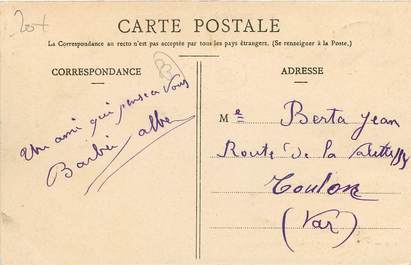 20+
CARTE POSTALE
La Correspondance au recto n'est pas acceptée par tous les pays étrangers. (Se renseigner à la Poste.)
CORRESPONDANCE
Un ami qui pense a Vous
Barbié
ADRESSE
Me Berta Jean
Route de la
Toulon
(Var)